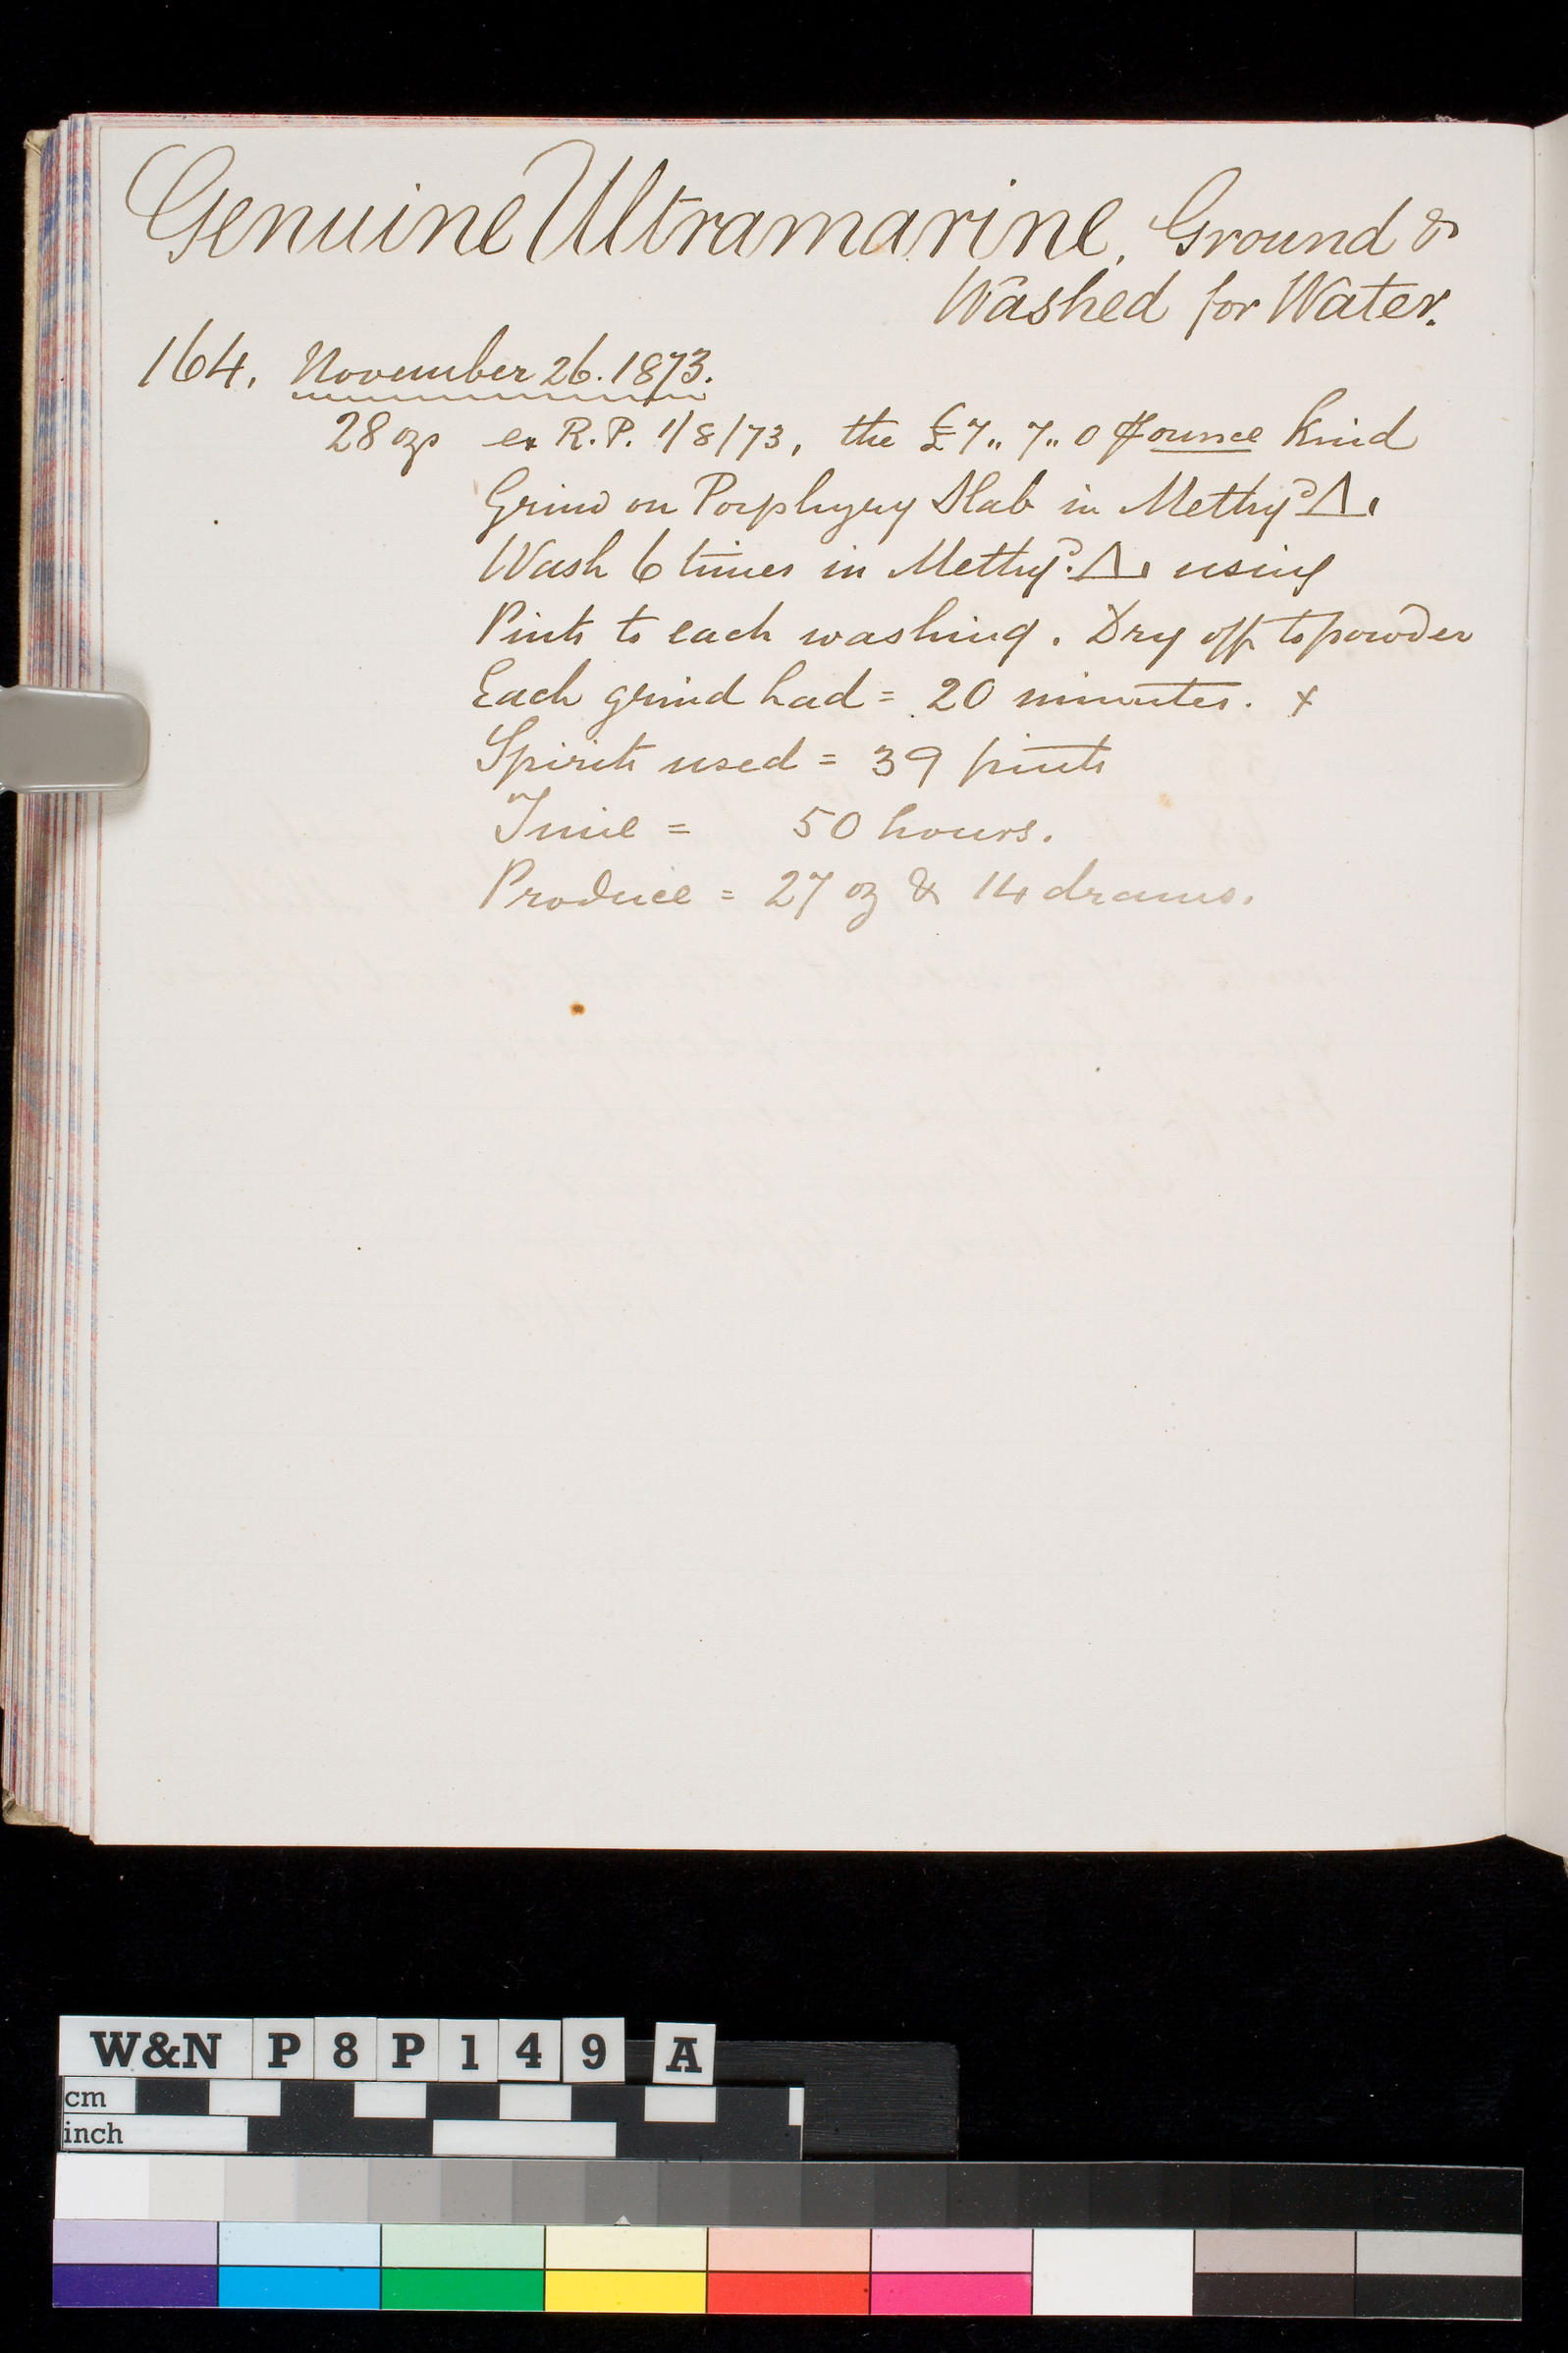 Genuine Ultramarine, Ground &
Washed for Water.
164. November 26. 1873.
28 ozs ex R.P. 1/8/73, the £7,, 7,, 0 ⅌ ounce kind
Grind on Porphyry Slab in Methyd △.
Wash 6 times in Methyd. △. using
Pints to each washing. Dry off to powder
Each grind had = 20 minutes. x
Spirits used = 39 pints
Time = 50 hours.
Produce = 27 oz & 14 drams.
W&N P8P149 A
cm
inch